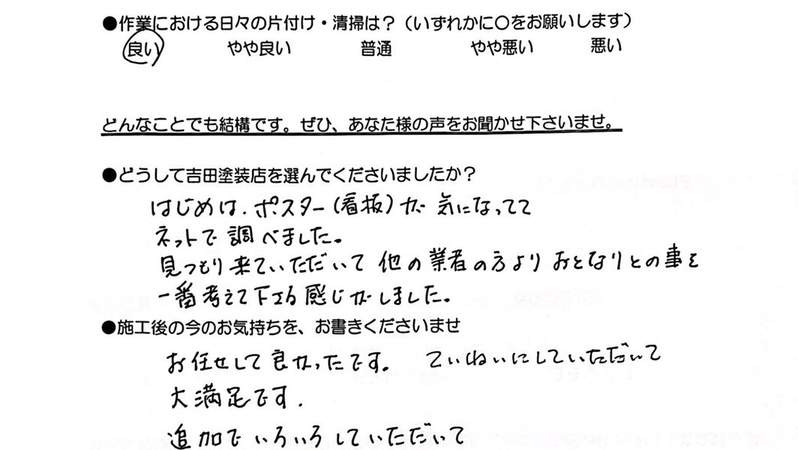 ●作業における日々の片付け・清掃は？（いずれかに〇をお願いします）
良い やや良い 普通 やや悪い 悪い
どんなことでも結構です。ぜひ、あなた様の声をお聞かせ下さいませ。
●どうして吉田塗装店を選んでくださいましたか？
はじめは、ポスター（看板）が気になってて
ネットで調べました。
見つもり来ていただいて他の業者の方よりおとなりとの事を
一番考えて下さる感じがしました。
●施工後の今のお気持ちを、お書きくださいませ
お任せして良かったです。 ていねいにしていただいて
大満足です.
追加でいろいろしていただいて